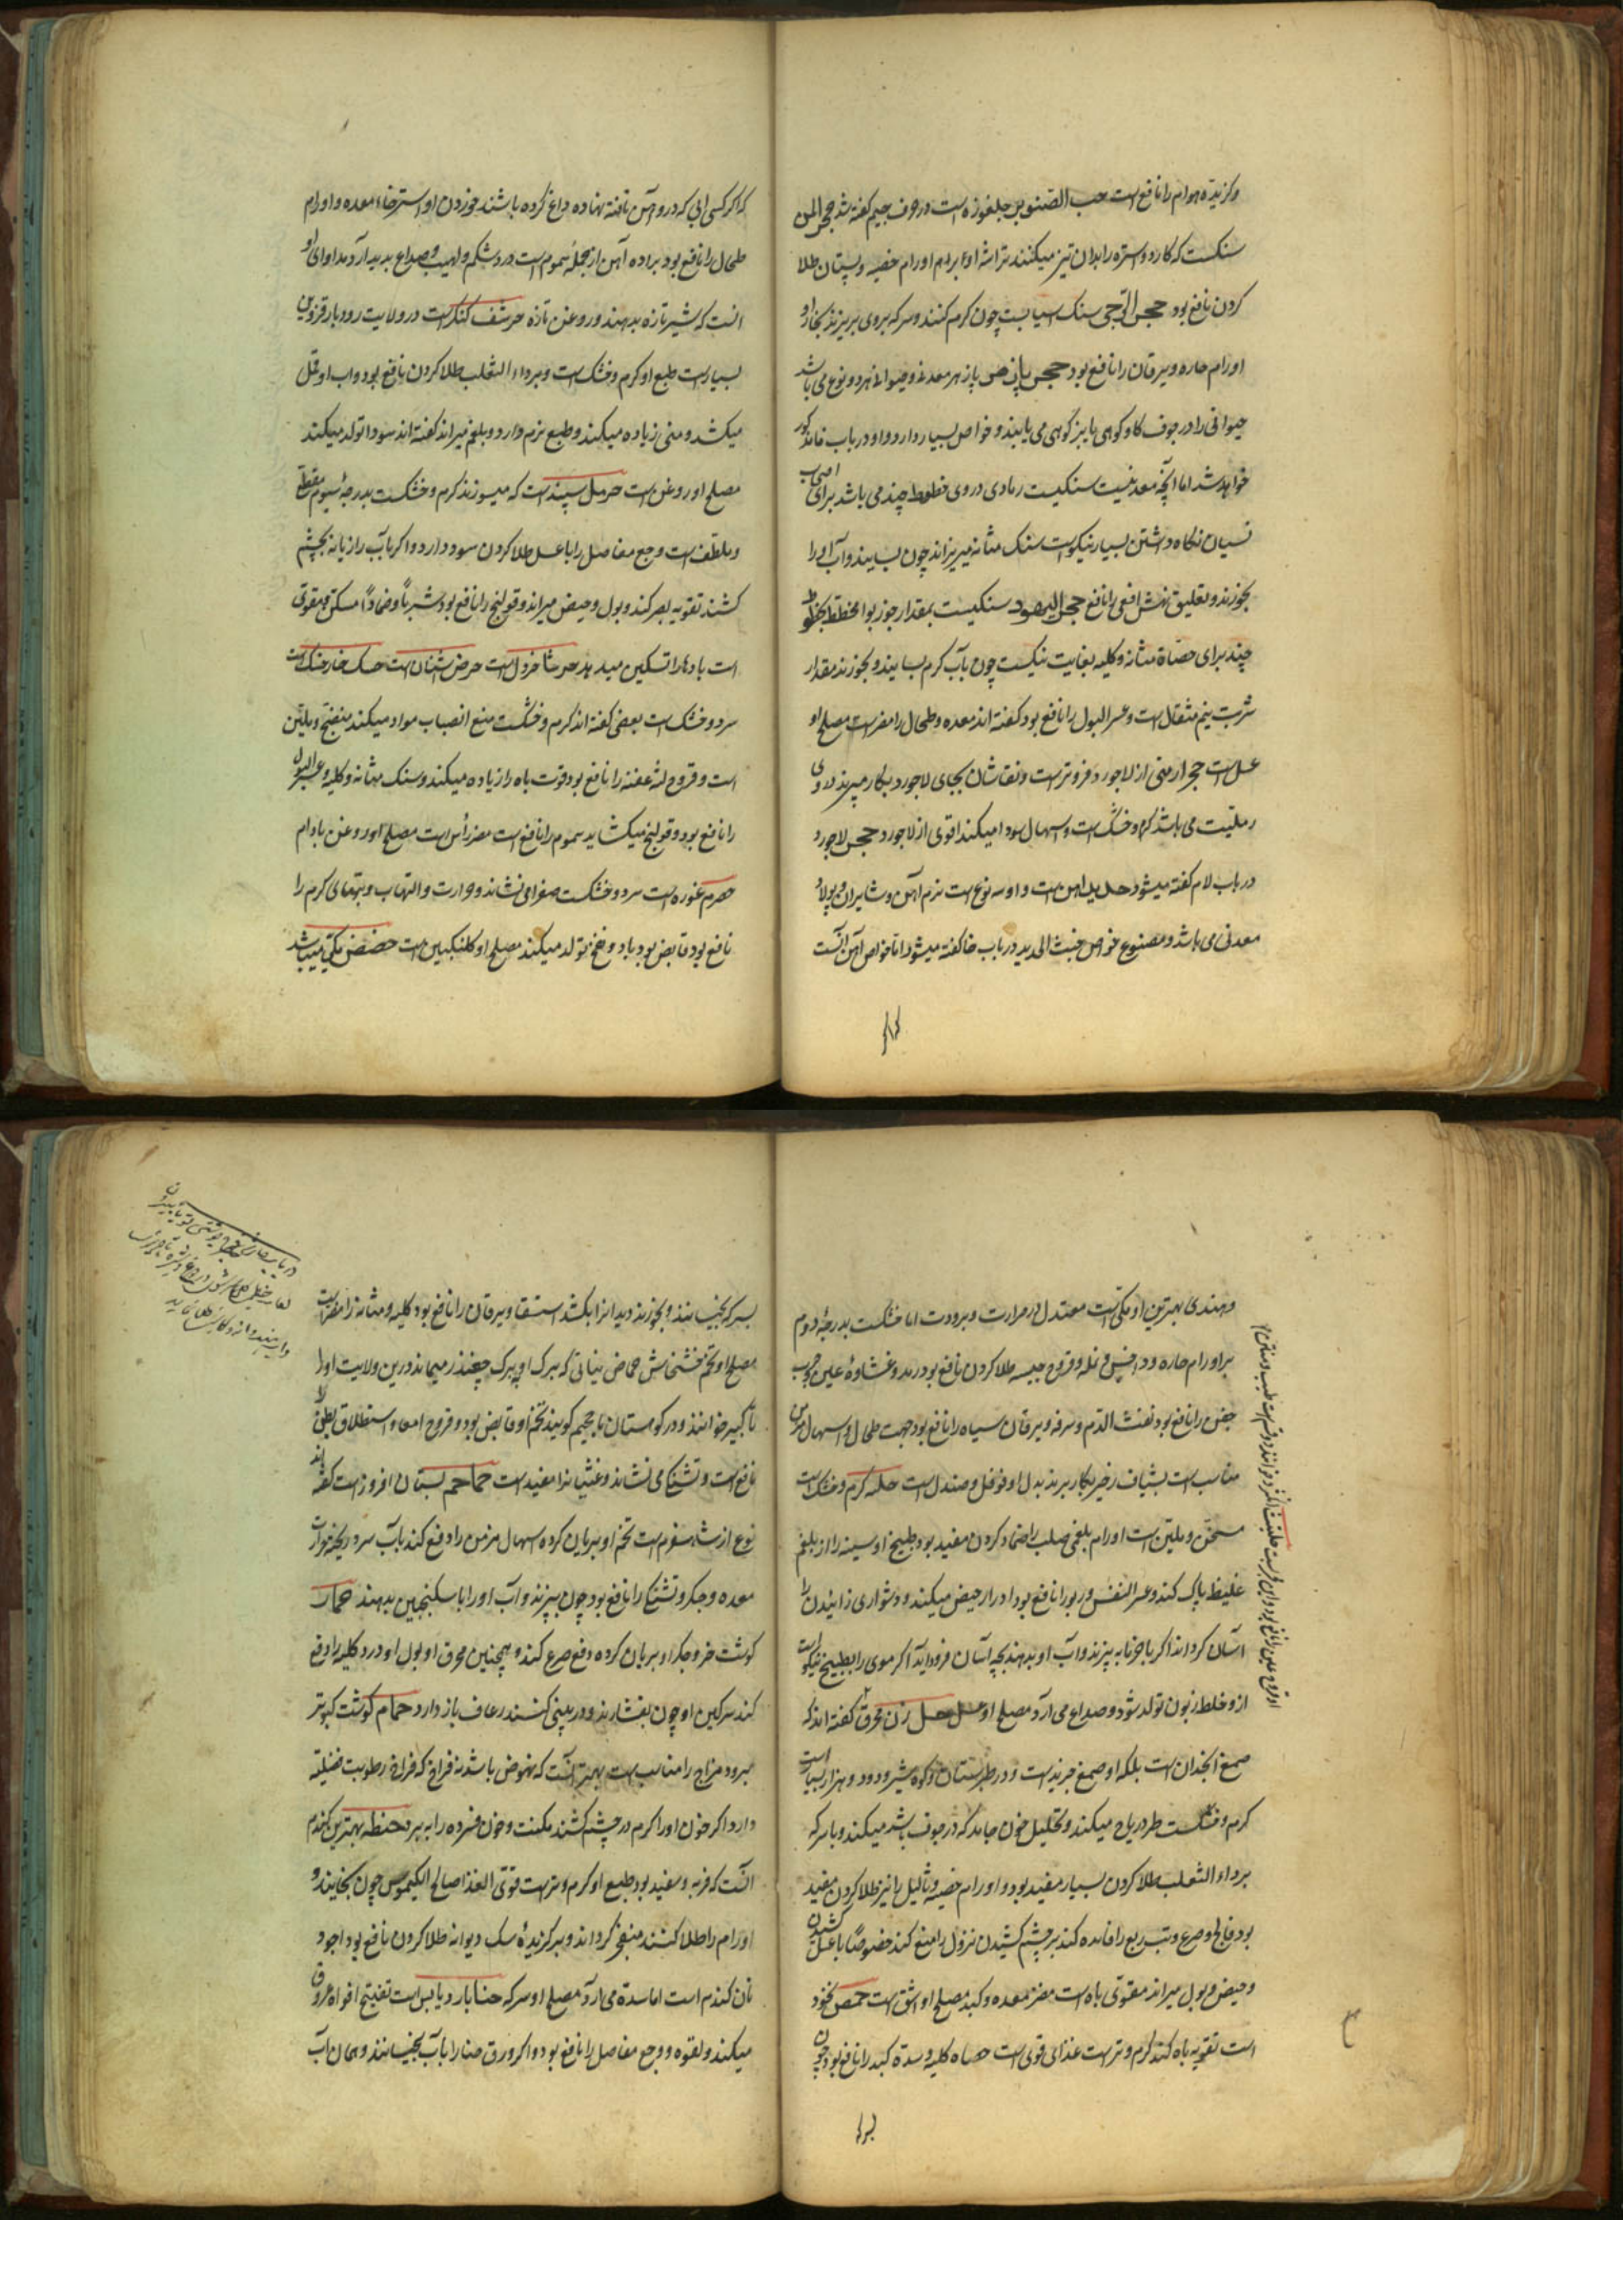 وکزیدهٔ هوام را نافع است حب الصنوبر جلغوزه است در حرف جیم کفته شد حجر المسن
سنکیست که کارد و استره را بدان تیز میکنند تراشهٔ او برای اورام خصیه و پستان طلا
کردن نافع بود حجر الرحی سنک آسیا است چون کرم کنند و سرکه بر وی بریزند بخار او
اورام حاره و یرقان را نافع بود حجر پازهر معدنی و حیوانی هر دو نوع می باشد
حیوانی را در جوف کاو کوهی یا بز کوهی می یابند و خواص بسیار دارد و او در باب فا مذکور
خواهد شد اما آنچه معدنیست سنکیست رمادی در وی خطوط چند می باشد برای اصحاب
نسیان نکاه داشتن بسیار نیکوست سنک مثانه میریزاند چون بسایند و آب او را
بخورند و تعلیق نهش افعی را نافع حجر الیهود سنکیست بمقدار جوز بوا مخطط بخطوط
چند برای حصاة مثانه و کلیه بغایت نیکست چون بآب کرم بسایند و بخورند مقدار
شربت نیم مثقال است و عسر البول را نافع بود کفته اند معده و طحال را مضر است مصلح او
عسل است حجر ارمنی از لاجورد فروتر است و نقاشان بجای لاجورد بکار میبرند در وی
رملیت می باشد کرم و خشک است و اسهال سودا میکند اقوی از لاجورد حجر لاجورد
در باب لام کفته میشود حدید آهن است و او سه نوع است نرم آهن و شابران و پولاد
معدنی می باشد و مصنوع خواص خبث الحدید در باب خا کفته میشود اما خواص آهن آنست
که اکر
که اکر کسی آبی که در و آهن تافته نهاده داغ کرده باشند خوردن او استرخاء معده و اورام
طحال را نافع بود براده آهن از جملهٔ سموم است درد شکم و لهیب و صداع پدید آرد مداوای او
انست که شیر تازه بدهند و روغن تازه حرشف کنکر است در ولایت رودبار قزوین
بسیار است طبع او کرم و خشک است و بر داء الثعلب طلا کردن نافع بود و آب او قمل
میکشد و منی زیاده میکند و طبع نرم دارد و بلغم میراند کفته اند سودا تولد میکند
مصلح او روغن است حرمل سپند است که میسوزند کرم و خشکست بدرجهٔ سیوم مقطع
و ملطف است وجع مفاصل را با عسل طلا کردن سود دارد و اکر بآب رازیانه بچشم
کشند تقویه بصر کند و بول و حیض میراند و قولنج را نافع بود شرباً و ضماداً مسکن و مقوی
است بادها را تسکین میدهد حرشا خردل است حرض اشنان است حسک خار خسک است
سرد و خشک است بعضی کفته اند کرم و خشکست منع انصباب مواد میکند منضج و ملین
است و قروح لثهٔ عفنه را نافع بود قوت باه را زیاده میکند و سنک مثانه و کلیه و عسر البول
را نافع بود و قولنج میکشاید سموم را نافع است مضر رأس است مصلح او روغن بادام
حصرم غوره است سرد و خشکست صفرا می نشاند و حرارت و التهاب و تبهای کرم را
نافع بود قابض بود باد و نفخ تولد میکند مصلح او کلنکبین است حضض مکی میباشد
و هندی بهترین او مکی است معتدل در حرارت و برودت اما خشکست بدرجهٔ دوم
بر اورام حاره و داخس و نمله و قروح خبیثه طلا کردن نافع بود رمد و غشاوهٔ عین و جرب
جفن را نافع بود نفث الدم و سرفه و یرقان سیاه را نافع بود جهت طحال و اسهال مزمن
مناسب است بشیاف زحیر بکار برند بدل او فوفل و صندل است حلبه کرم و خشک است
مسخن و ملین است اورام بلغمی صلب را ضماد کردن مفید بود طبیخ او سینه را از بلغم
غلیظ پاک کند و عسر النفس و ربو را نافع بود ادرار حیض میکند و دشواری زائیدن را
آسان کرداند اکر با خرما به پزند و آب او بدهند بچه آسان فرود آید اکر موی را بطبیخ نیکو است
ازو خلط زبون تولد شود و صداع می آرد مصلح او عسل حلزن محرق کفته اند که
صمغ انجدان است بلکه او صمغ خربد است و در طبرستان و کوه شیرودود و هزار بسیار است
کرم و خشکست طرد ریاح میکند و تحلیل خون جامد که در جوف باشد میکند و با سرکه
بر داء الثعلب طلا کردن بسیار مفید بود و اورام خصیه و ثآلیل را نیز طلا کردن مفید
بود فالج و صرع و تب ربع را فائده کند بر چشم کشیدن نزول را منع کند خصوصاً با عسل کشیدن
و حیض و بول میراند مقوی باه است مضر معده و کبد مصلح او اشق است حمص نخود
است تقویه باه کند کرم و تر است غذای قوی است حصاه کلیه و سدهٔ کبد را نافع بود چون
بسرکه بخیسانند و بخورند دیدان را بکشد استسقا و یرقان را نافع بود کلیه و مثانه را مضر است
مصلح او تخم خشخاش حماض نباتی که برک او ببرک چغندر میماند درین ولایت او را
نافع است و تشنکی می نشاند و غثیان را مفید است حماحم بستان افروز است کفته اند
نوع از شاهسفرم است تخم او بریان کرده اسهال مزمن را دفع کند بآب سرد ریخته حرارت
معده و جکر و تشنکی را نافع بود چون بپزند و آب او را با سکنجبین بدهند حمار
کوشت خر و جکر او بریان کرده دفع صرع کند و همچنین محرق او بول او درد کلیه را دفع
کند سرکین او چون بفشارند و در بینی کنند رعاف باز دارد حمام کوشت کبوتر
مبرود مزاج را مناسب است بهتر آنست که نهوض باشد نه فراخ که فراخ رطوبت فضلیه
دارد اکر خون او را کرم در چشم کشند مکنت و خون فسرده را به برد حنطه بهترین کندم
آنست که فربه و سفید بود طبع او کرم و تر است قوی الغذا صالح الکیموس چون بخایند و
اورام را طلا کنند منفجر کرداند و بر کزیدهٔ سک دیوانه طلا کردن نافع بود اجود
نان کندم است اما سده می آرد مصلح او سرکه حنا بارد یابس است تفتیح افواه عروق
میکند و لقوه و وجع مفاصل را نافع بود و اکر ورق حنا را بآب بخیسانند و همان آب